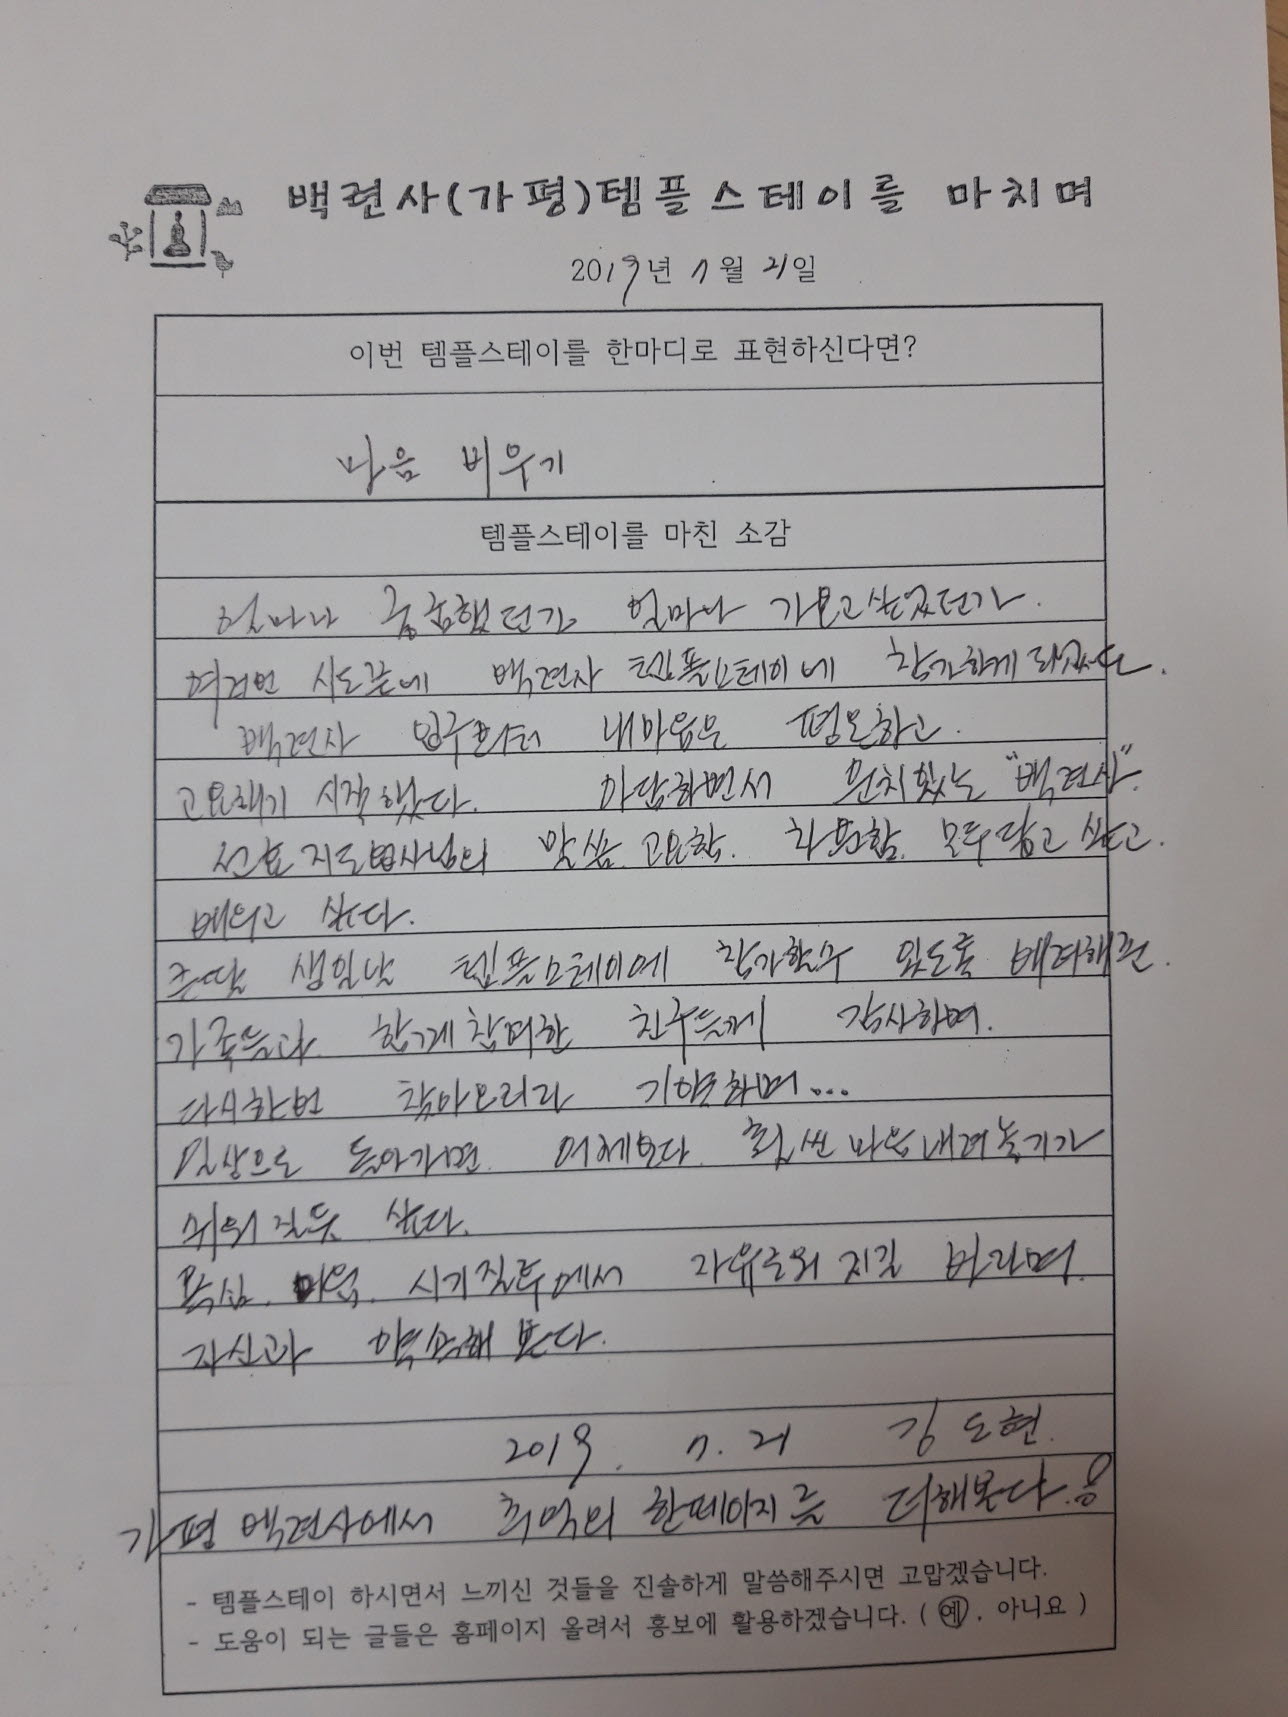 백련사(가평)템플스테이를 마치며
2019년 7월 21일
이번 템플스테이를 한마디로 표현하신다면?
마음 비우기
템플스테이를 마친 소감
얼마나 궁금했던가, 얼마나 가보고싶었던가.
여러번 시도끝에 백련사 템플스테이에 참가하게 되었다.
백련사 입구부터 내마음은 평온하고.
고요해기 시작했다. 아담하면서 운치있는 "백련사".
선효 지도법사님의 말씀. 고요함. 차분함. 모두 담고 싶고.
배우고 싶다.
큰딸 생일날 템플스테이에 참가할수 있도록 배려해준.
가족들과 함께 참여한 친구들께 감사하며.
다시한번 찾아오리라 기약하며...
일상으로 돌아가면. 어제보다. 힘쎈 마음 내려놓기가
쉬워질듯 싶다.
욕심. 미움. 시기질투에서 자유로워 지길 바라며.
자신과 약속해 본다.
2019. 7. 21 김도현.
가평 백련사에서 추억의 한페이지를 더해본다.
- 템플스테이 하시면서 느끼신 것들을 진솔하게 말씀해주시면 고맙겠습니다.
- 도움이 되는 글들은 홈페이지 올려서 홍보에 활용하겠습니다. ( 예 , 아니요 )